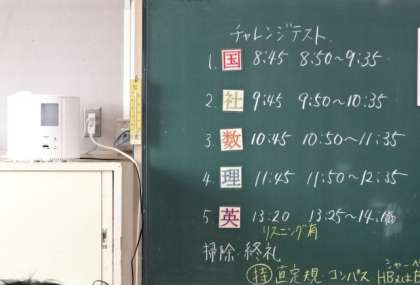 チャレンジテスト
1. 国 8:45 8:50～9:35
2. 社 9:45 9:50～10:35
3. 数 10:45 10:50～11:35
4. 理 11:45 11:50～12:35
5 英 13:20 13:25～14:1
リスニング有
掃除・終礼
持 直定規・コンパス
シャーペ
HB又はB